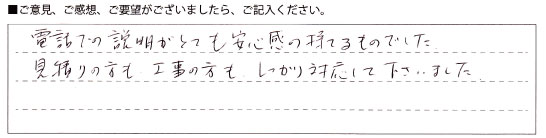 ■ご意見、ご感想、ご要望がございましたら、ご記入ください。
電話での説明がとても安心感の持てるものでした
見積りの方も、工事の方も、しっかり対応して下さいました